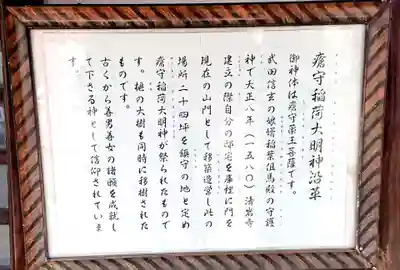 瘡守稲荷大明神沿革
御神体は瘡守薬王菩薩です。
武田信玄の娘婿稲葉但馬殿の守護
神で天正八年(一五八〇)清岩寺
建立の際自分の邸宅を庫裡に門を
現在の山門として移築造営し此の
場所二十四坪を鎮守の地と定め
瘡守稲荷大明神が祭られたもので
す。の大樹も同時に移樹された
ものです。
古くから善男善女の諸願を成就し
て下さる神として信仰されていま
す。